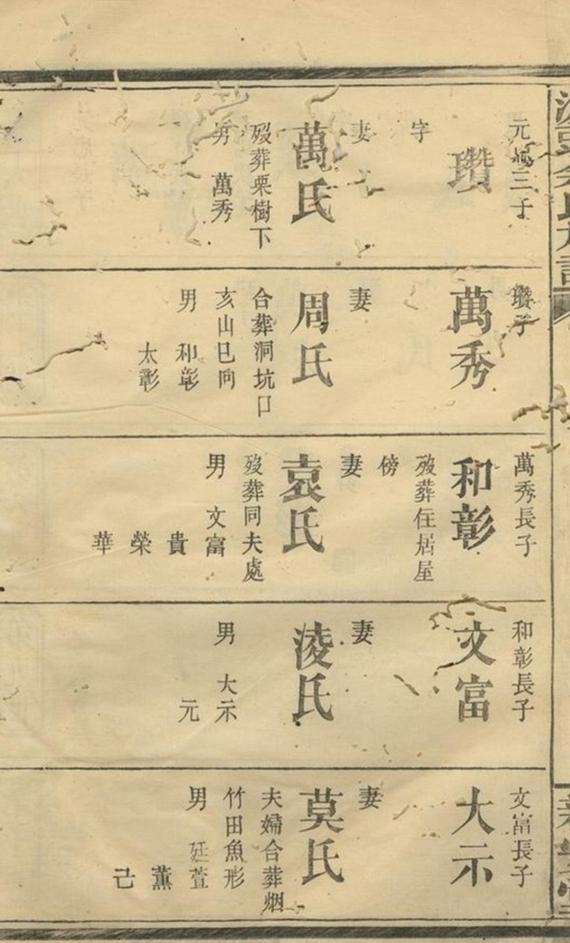 三子
瓚
字
妻
萬氏
歿葬栗樹下
男 萬秀
瓚子
萬秀
妻
周氏
合葬洞坑口
亥山巳向
男 和彰
太彰
萬秀長子
和彰
歿葬住居屋
傍
妻
袁氏
歿葬同夫處
男 文富
貴
榮
華
和彰長子
文富
妻
淩氏
男 大示
元
文富長子
大示
妻
莫氏
夫婦合葬烟
竹田魚形
男 廷萱
薫
己